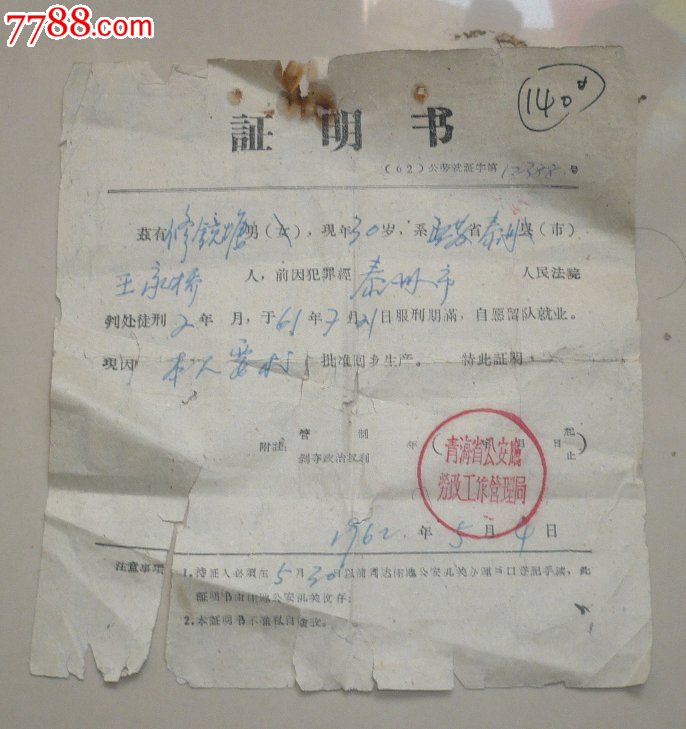 7788.com
140
証明书
(62)公劳就証字第12388号
兹有修镜塘男(女),现年30岁,系江苏省泰州县(市)
王家桥人,前因犯罪經泰州市人民法院
判处徒刑2年 月,于61年7月21日服刑期滿,自愿留队就业。
現因本人要求 批准囘乡生产。 特此証明
附注: 管制 剥夺政治权利 (年 月 日起止)
青海省公安廳
勞改工作管理局
1962年5月4日
注意事項:1.持証人必須在5月30日以前到达住地公安机关办理戶口登記手續,此
証明书由住地公安机关收存;
2.本証明书不准私自塗改。